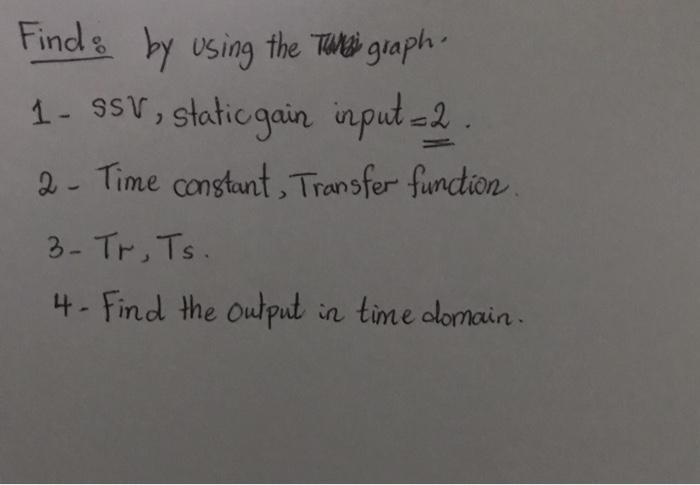 Find: by using the graph.
1- SSV, static gain input = 2.
2- Time constant, Transfer function.
3- Tr, Ts.
4- Find the output in time domain.